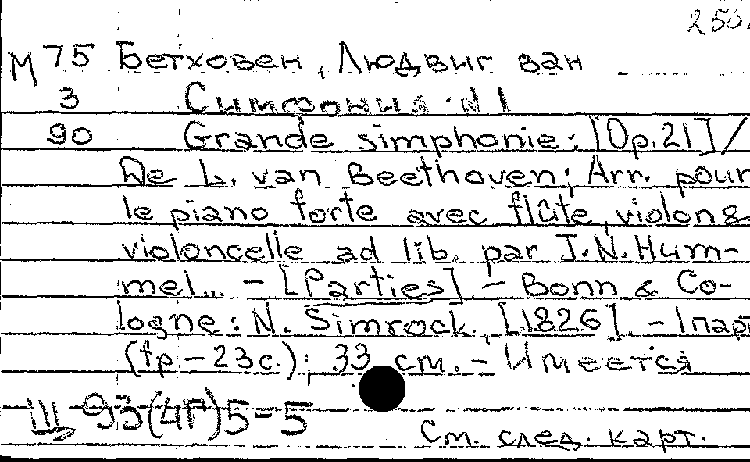 250
М 75 Бетховен, Людвиг ван
3 Симфония N 1
90 Grande simphonie: [Op.21] /
De L. van Beethoven; Arr. pour
le piano forte avec flûte, violon &
violoncelle ad lib. par J.N. Hum-
mel... - [Parties] - Bonn & Co-
logne: N. Simrock, [1826]. - 1 пар
(fp - 23 с.); 33 см. - Имеется
Щ 93(4Г)5-5
См. след. карт.